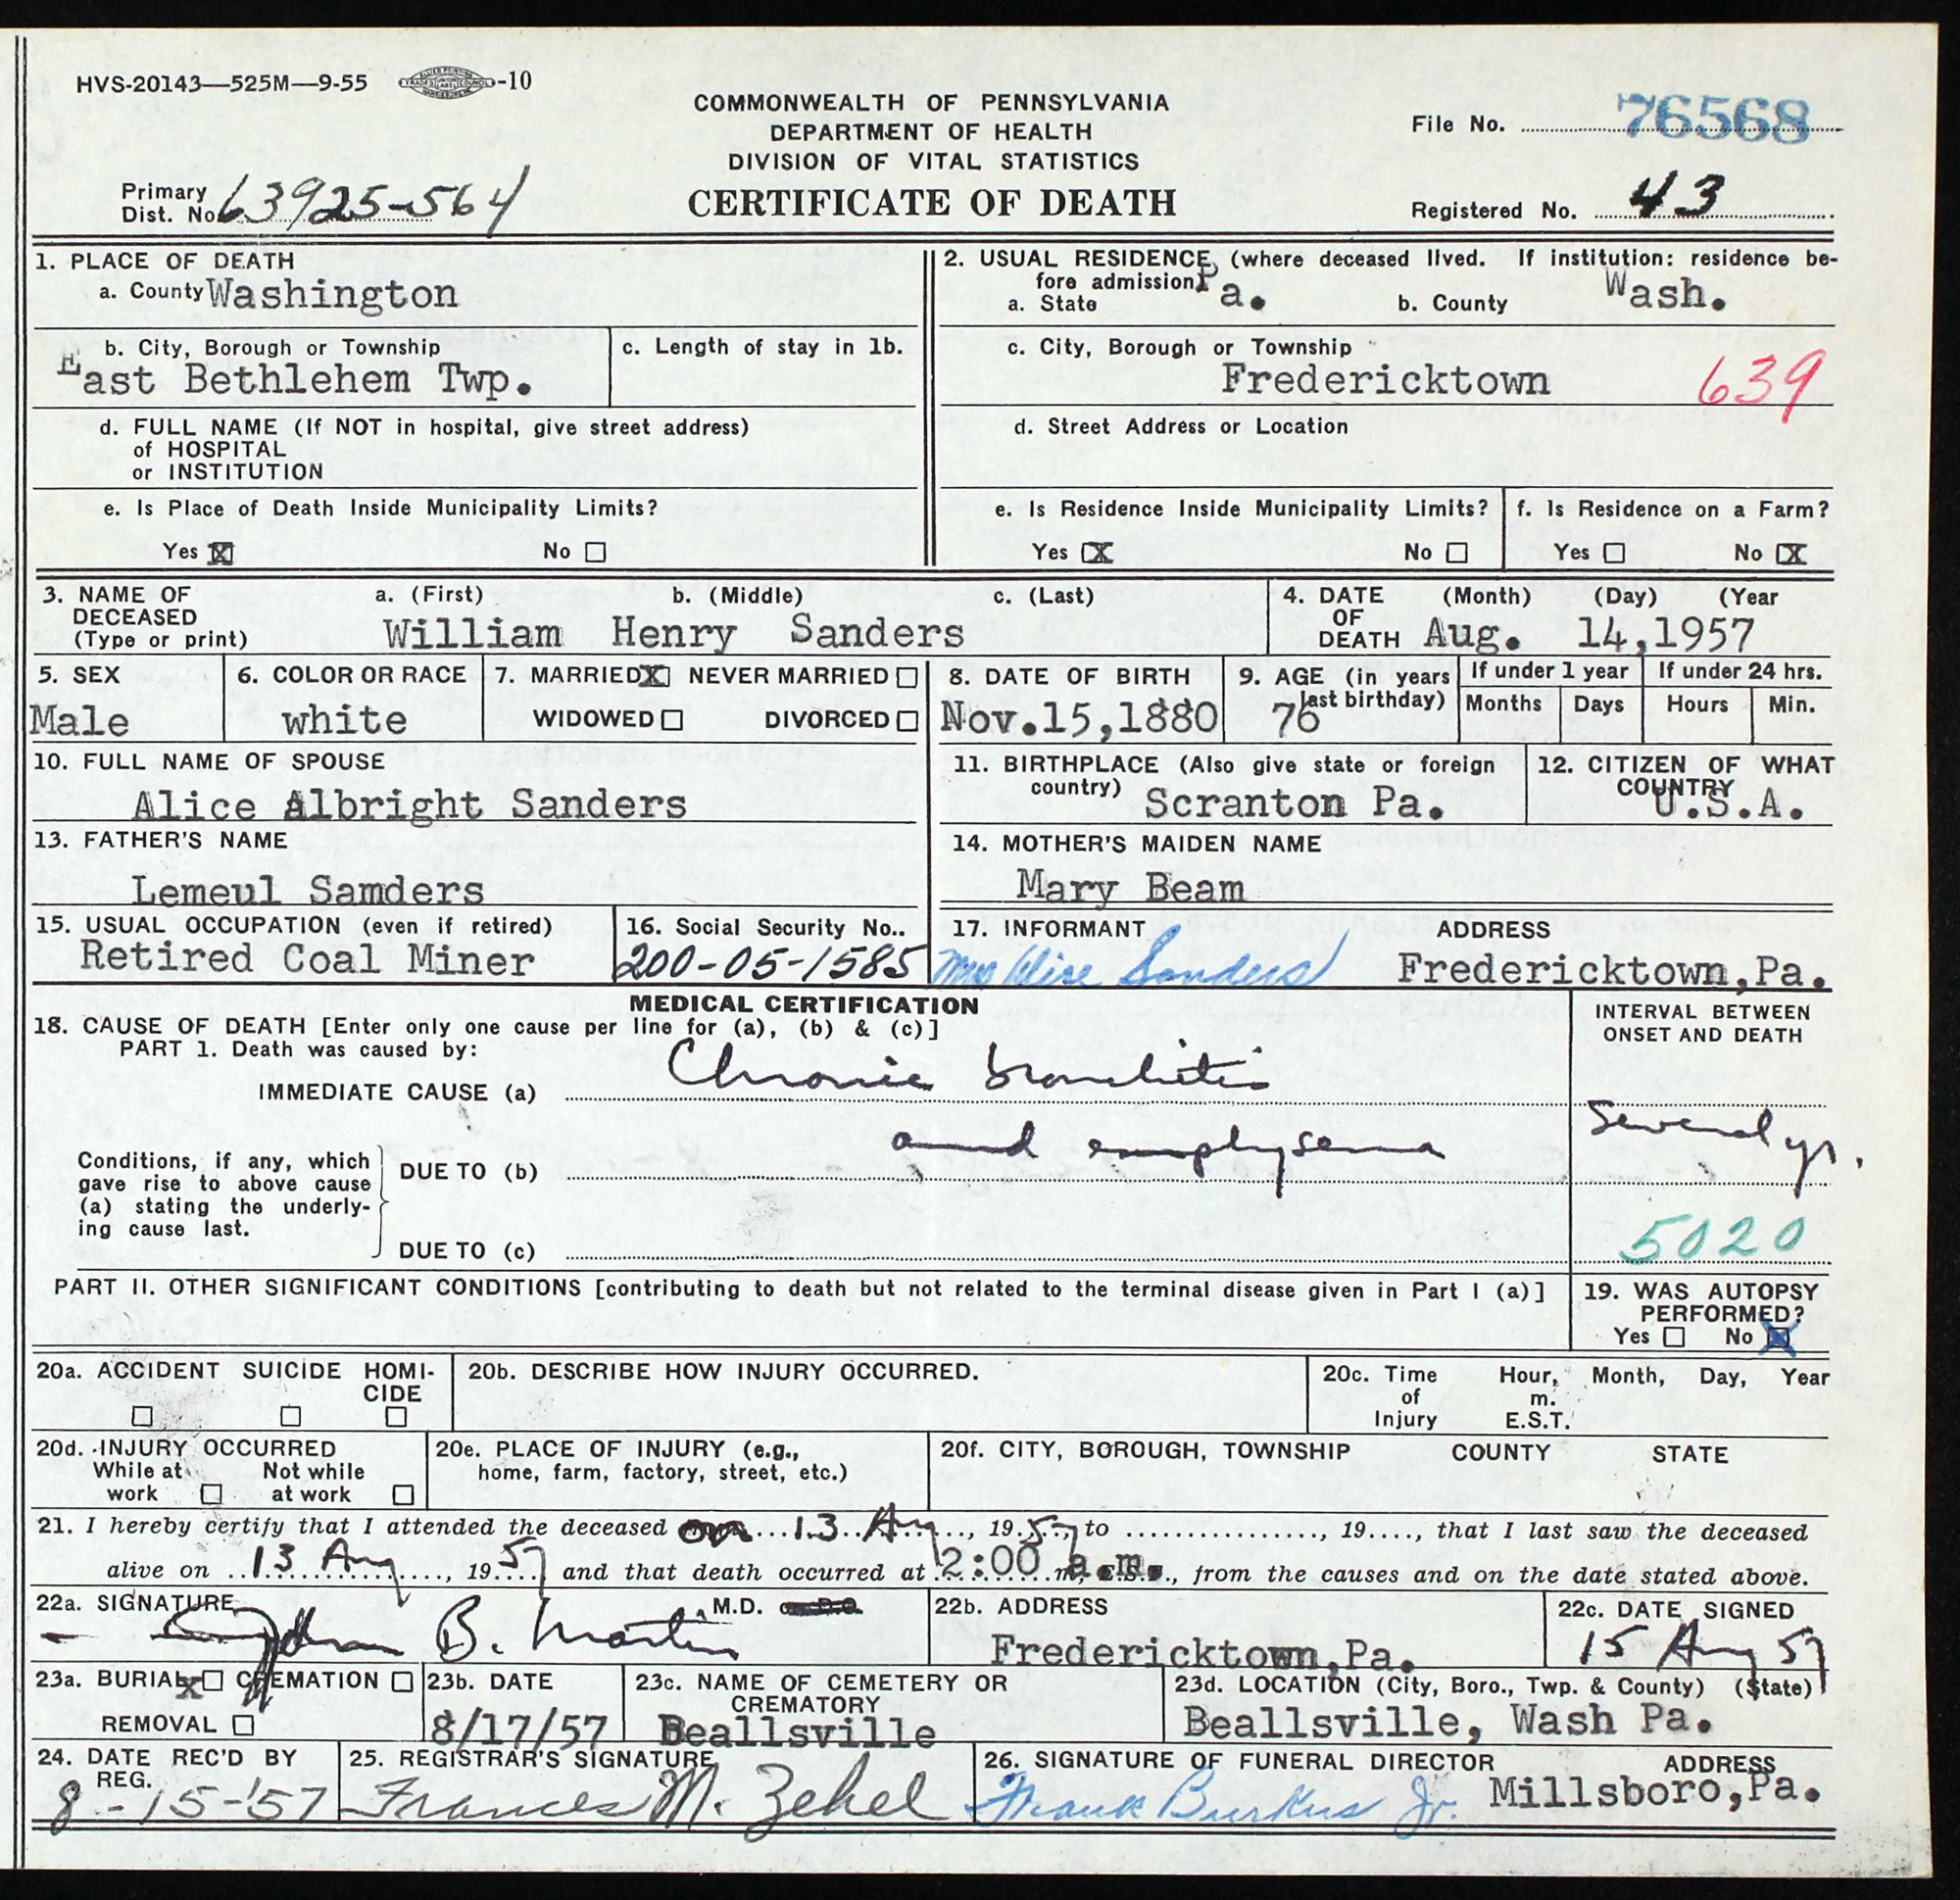 HVS-20143—525M—9-55 -10
COMMONWEALTH OF PENNSYLVANIA
DEPARTMENT OF HEALTH
DIVISION OF VITAL STATISTICS
CERTIFICATE OF DEATH
File No. 76568
Primary
Dist. No. 63925-564
Registered No. 43
1. PLACE OF DEATH
a. County Washington
b. City, Borough or Township
East Bethlehem Twp.
c. Length of stay in 1b.
d. FULL NAME (If NOT in hospital, give street address)
of HOSPITAL
or INSTITUTION
e. Is Place of Death Inside Municipality Limits?
Yes X No
2. USUAL RESIDENCE (where deceased lived. If institution: residence be-
fore admission)
a. State Pa. b. County Wash.
c. City, Borough or Township
Fredericktown 639
d. Street Address or Location
e. Is Residence Inside Municipality Limits?
Yes X No
f. Is Residence on a Farm?
Yes No X
3. NAME OF
DECEASED
(Type or print)
a. (First) b. (Middle) c. (Last)
William Henry Sanders
4. DATE
OF
DEATH
(Month) (Day) (Year
Aug. 14,1957
5. SEX
Male
6. COLOR OR RACE
white
7. MARRIED X NEVER MARRIED
WIDOWED DIVORCED
8. DATE OF BIRTH
Nov.15,1880
9. AGE (in years
last birthday)
76
If under 1 year
Months Days
If under 24 hrs.
Hours Min.
10. FULL NAME OF SPOUSE
Alice Albright Sanders
11. BIRTHPLACE (Also give state or foreign
country) Scranton Pa.
12. CITIZEN OF WHAT
COUNTRY
U.S.A.
13. FATHER'S NAME
Lemeul Samders
14. MOTHER'S MAIDEN NAME
Mary Beam
15. USUAL OCCUPATION (even if retired)
Retired Coal Miner
16. Social Security No..
200-05-1585
17. INFORMANT ADDRESS
Mrs Alice Sanders Fredericktown,Pa.
MEDICAL CERTIFICATION
18. CAUSE OF DEATH [Enter only one cause per line for (a), (b) & (c)]
PART 1. Death was caused by:
IMMEDIATE CAUSE (a) Chronic bronchitis
Conditions, if any, which
gave rise to above cause
(a) stating the underly-
ing cause last.
DUE TO (b) and emphysema
DUE TO (c)
INTERVAL BETWEEN
ONSET AND DEATH
Several yr.
5020
PART II. OTHER SIGNIFICANT CONDITIONS [contributing to death but not related to the terminal disease given in Part I (a)]
19. WAS AUTOPSY
PERFORMED?
Yes No X
20a. ACCIDENT SUICIDE HOMI-
CIDE
20b. DESCRIBE HOW INJURY OCCURRED.
20c. Time
of
Injury
Hour, Month, Day, Year
m.
E.S.T.
20d. INJURY OCCURRED
While at
work
Not while
at work
20e. PLACE OF INJURY (e.g.,
home, farm, factory, street, etc.)
20f. CITY, BOROUGH, TOWNSHIP COUNTY STATE
21. I hereby certify that I attended the deceased on 13 Aug, 1957 to ................, 19...., that I last saw the deceased
alive on 13 Aug, 1957 and that death occurred at 12:00 a.m., from the causes and on the date stated above.
22a. SIGNATURE
B. Martin M.D.
22b. ADDRESS
Fredericktown,Pa.
22c. DATE SIGNED
15 Aug 57
23a. BURIAL X CREMATION
REMOVAL
23b. DATE
8/17/57
23c. NAME OF CEMETERY OR
CREMATORY
Beallsville
23d. LOCATION (City, Boro., Twp. & County) (State)
Beallsville, Wash Pa.
24. DATE REC'D BY
REG.
8-15-'57
25. REGISTRAR'S SIGNATURE
Frances M. Zehel
26. SIGNATURE OF FUNERAL DIRECTOR ADDRESS
Frank Burkus Jr. Millsboro,Pa.